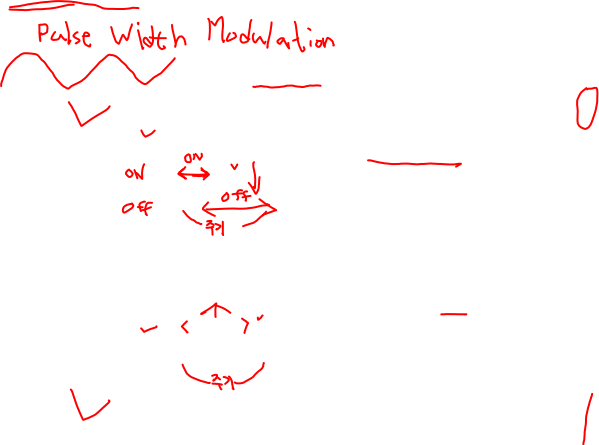 Pulse Width Modulation
ON
ON
OFF
OFF
주기
주기